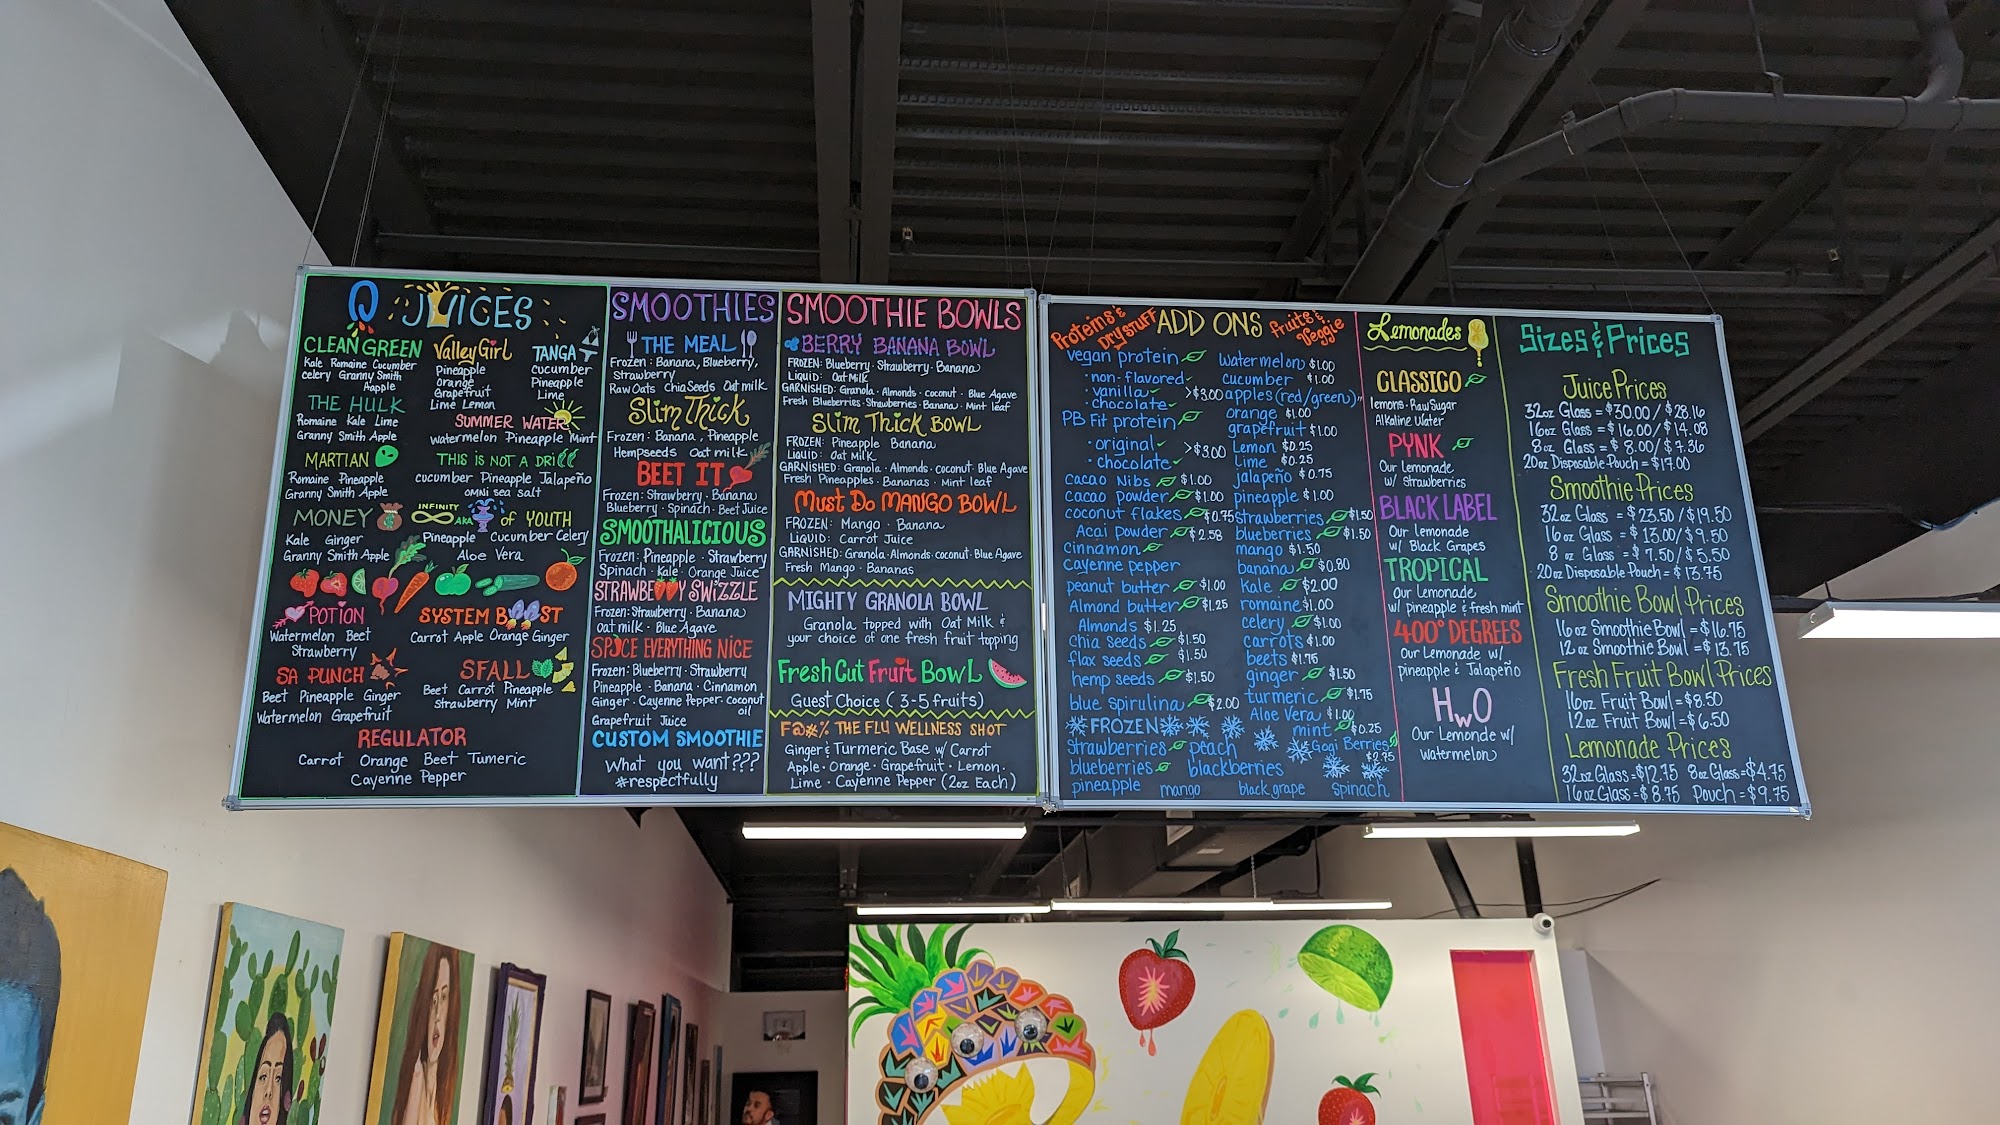 Q JUICES
CLEAN GREEN
Kale Romaine Cucumber
celery Granny Smith
Apple
Valley Girl
Pineapple
Orange
Grapefruit
Lime Lemon
TANGA
Cucumber
Pineapple
Lime
THE HULK
Romaine Kale Lime
Granny Smith Apple
SUMMER WATER
Watermelon Pineapple Mint
MARTIAN
Romaine Pineapple
Granny Smith Apple
THIS IS NOT A DRILL
cucumber Pineapple Jalapeño
OMNI sea salt
MONEY
Kale Ginger
Granny Smith Apple
INFINITY AKA of YOUTH
Pineapple Cucumber Celery
Aloe Vera
POTION
Watermelon Beet
Strawberry
SYSTEM BOOST
Carrot Apple Orange Ginger
SA PUNCH
Beet Pineapple Ginger
Watermelon Grapefruit
SFALL
Beet Carrot Pineapple
Strawberry Mint
REGULATOR
Carrot Orange Beet Tumeric
Cayenne Pepper
SMOOTHIES
THE MEAL
Frozen: Banana, Blueberry,
Strawberry
Raw Oats Chia Seeds Oat milk
Slim Thick
Frozen: Banana, Pineapple
Hempseeds Oat milk
BEET IT
Frozen: Strawberry · Banana
Blueberry · Spinach · Beet Juice
SMOOTHALICIOUS
Frozen: Pineapple · Strawberry
Spinach · Kale · Orange Juice
STRAWBERRY SWIZZLE
Frozen: Strawberry · Banana
oat milk · Blue Agave
SPICE EVERYTHING NICE
Frozen: Blueberry · Strawberry
Pineapple · Banana · Cinnamon
Ginger · Cayenne Pepper · coconut
oil
Grapefruit Juice
CUSTOM SMOOTHIE
What you want???
#respectfully
SMOOTHIE BOWLS
BERRY BANANA BOWL
FROZEN: Blueberry · Strawberry · Banana
LIQUID: Oat Milk
GARNISHED: Granola · Almonds · coconut · Blue Agave
Fresh Blueberries · Strawberries · Banana · Mint leaf
Slim Thick BOWL
FROZEN: Pineapple Banana
LIQUID: Oat Milk
GARNISHED: Granola · Almonds · coconut · Blue Agave
Fresh Pineapples · Bananas · Mint leaf
Must Do MANGO BOWL
FROZEN: Mango · Banana
LIQUID: Carrot Juice
GARNISHED: Granola · Almonds · coconut · Blue Agave
Fresh Mango · Bananas
MIGHTY GRANOLA BOWL
Granola topped with Oat Milk &
your choice of one fresh fruit topping
Fresh Cut Fruit Bowl
Guest Choice (3-5 fruits)
F@#% THE FLU WELLNESS SHOT
Ginger & Turmeric Base w/ Carrot
Apple · Orange · Grapefruit · Lemon ·
Lime · Cayenne Pepper (2oz Each)
ADD ONS
Proteins &
Dry STUFF
vegan protein
· non-flavored
· vanilla
· chocolate
>$3.00
PB Fit protein
· original
· chocolate
>$3.00
cacao Nibs $1.00
cacao powder $1.00
coconut flakes $0.75
Acai Powder $2.58
cinnamon
cayenne pepper
peanut butter $1.00
Almond butter $1.25
Almonds $1.25
chia seeds $1.50
flax seeds $1.50
hemp seeds $1.50
blue spirulina $2.00
fruits &
Veggie
Watermelon $1.00
cucumber $1.00
apples (red/green) "
orange $1.00
grapefruit $1.00
Lemon $0.25
Lime $0.25
jalapeño $0.75
pineapple $1.00
strawberries $1.50
blueberries $1.50
mango $1.50
banana $0.80
Kale $2.00
romaine $1.00
celery $1.00
carrots $1.00
beets $1.75
ginger $1.50
turmeric $1.75
Aloe Vera $1.00
mint $0.25
Gogi Berries
$2.75
FROZEN
strawberries peach
blueberries blackberries
pineapple mango black grape spinach
Lemonades
CLASSICO
lemons · Raw Sugar
Alkaline Water
PYNK
Our Lemonade
w/ Strawberries
BLACK LABEL
Our lemonade
w/ Black Grapes
TROPICAL
Our Lemonade
w/ pineapple & fresh mint
400° DEGREES
Our Lemonade w/
pineapple & Jalapeño
HwO
Our Lemonde w/
watermelon
Sizes & Prices
Juice Prices
32oz Glass = $30.00 / $28.16
16oz Glass = $16.00 / $14.08
8oz Glass = $8.00 / $7.36
20oz Disposable Pouch = $17.00
Smoothie Prices
32oz Glass = $23.50 / $19.50
16oz Glass = $13.00 / $9.50
8oz Glass = $7.50 / $5.50
20oz Disposable Pouch = $13.75
Smoothie Bowl Prices
16oz Smoothie Bowl = $16.75
12oz Smoothie Bowl = $13.75
Fresh Fruit Bowl Prices
16oz Fruit Bowl = $8.50
12oz Fruit Bowl = $6.50
Lemonade Prices
32oz Glass = $12.75 8oz Glass = $4.75
16oz Glass = $8.75 Pouch = $9.75